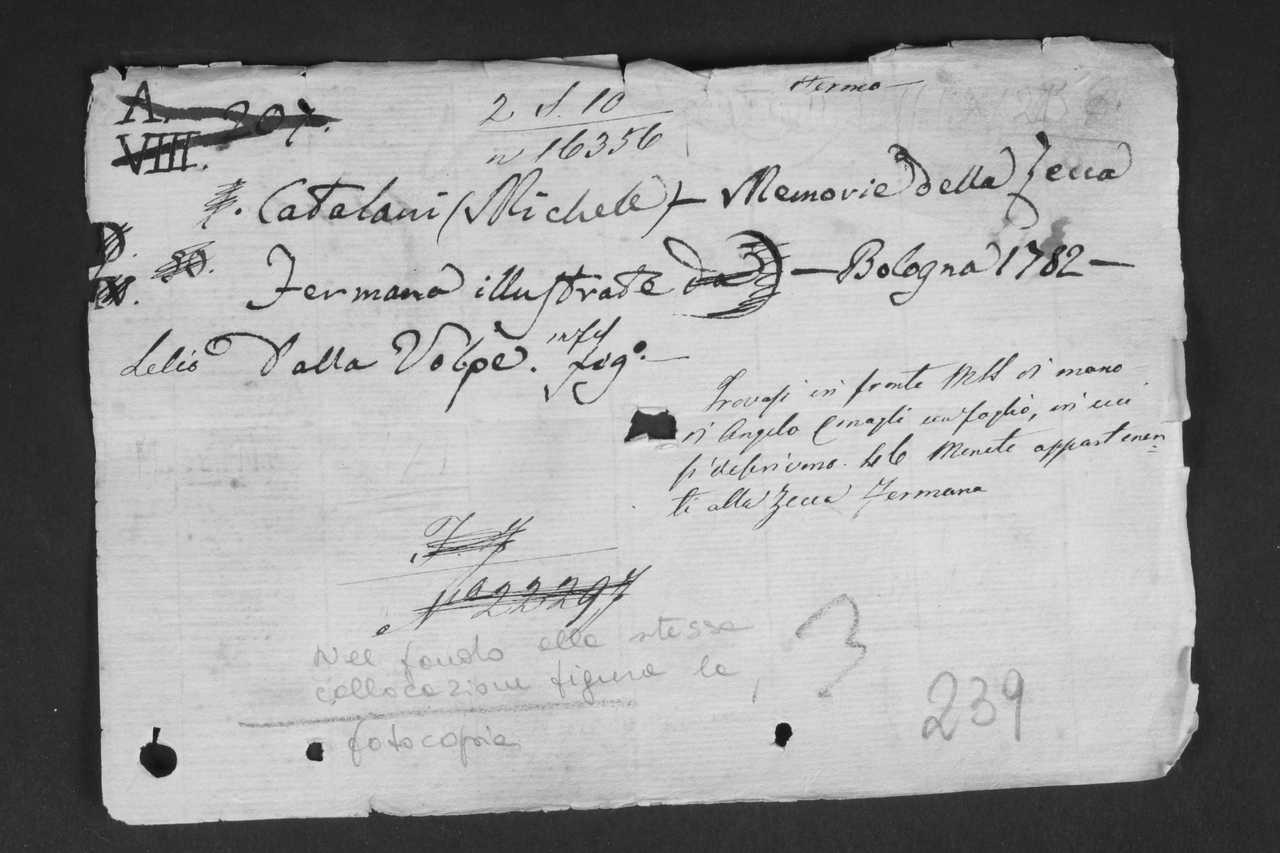 A. 207.
VIII.
2 f. 10
n 16356
Fermo
4. Catalani (Michele) - Memorie della Zecca
Fermana illustrate da - Bologna 1782 -
Lelio dalla Volpe. in fol
fig.º
50.
Trovasi in fronte MSS di mano
di Angelo Cinagli un foglio, in cui
si descrivono 46 Monete appartenen=
ti alla Zecca Fermana
Nº 22297
Nel fondo alla stessa
collocazione figura la
fotocopia
?
239